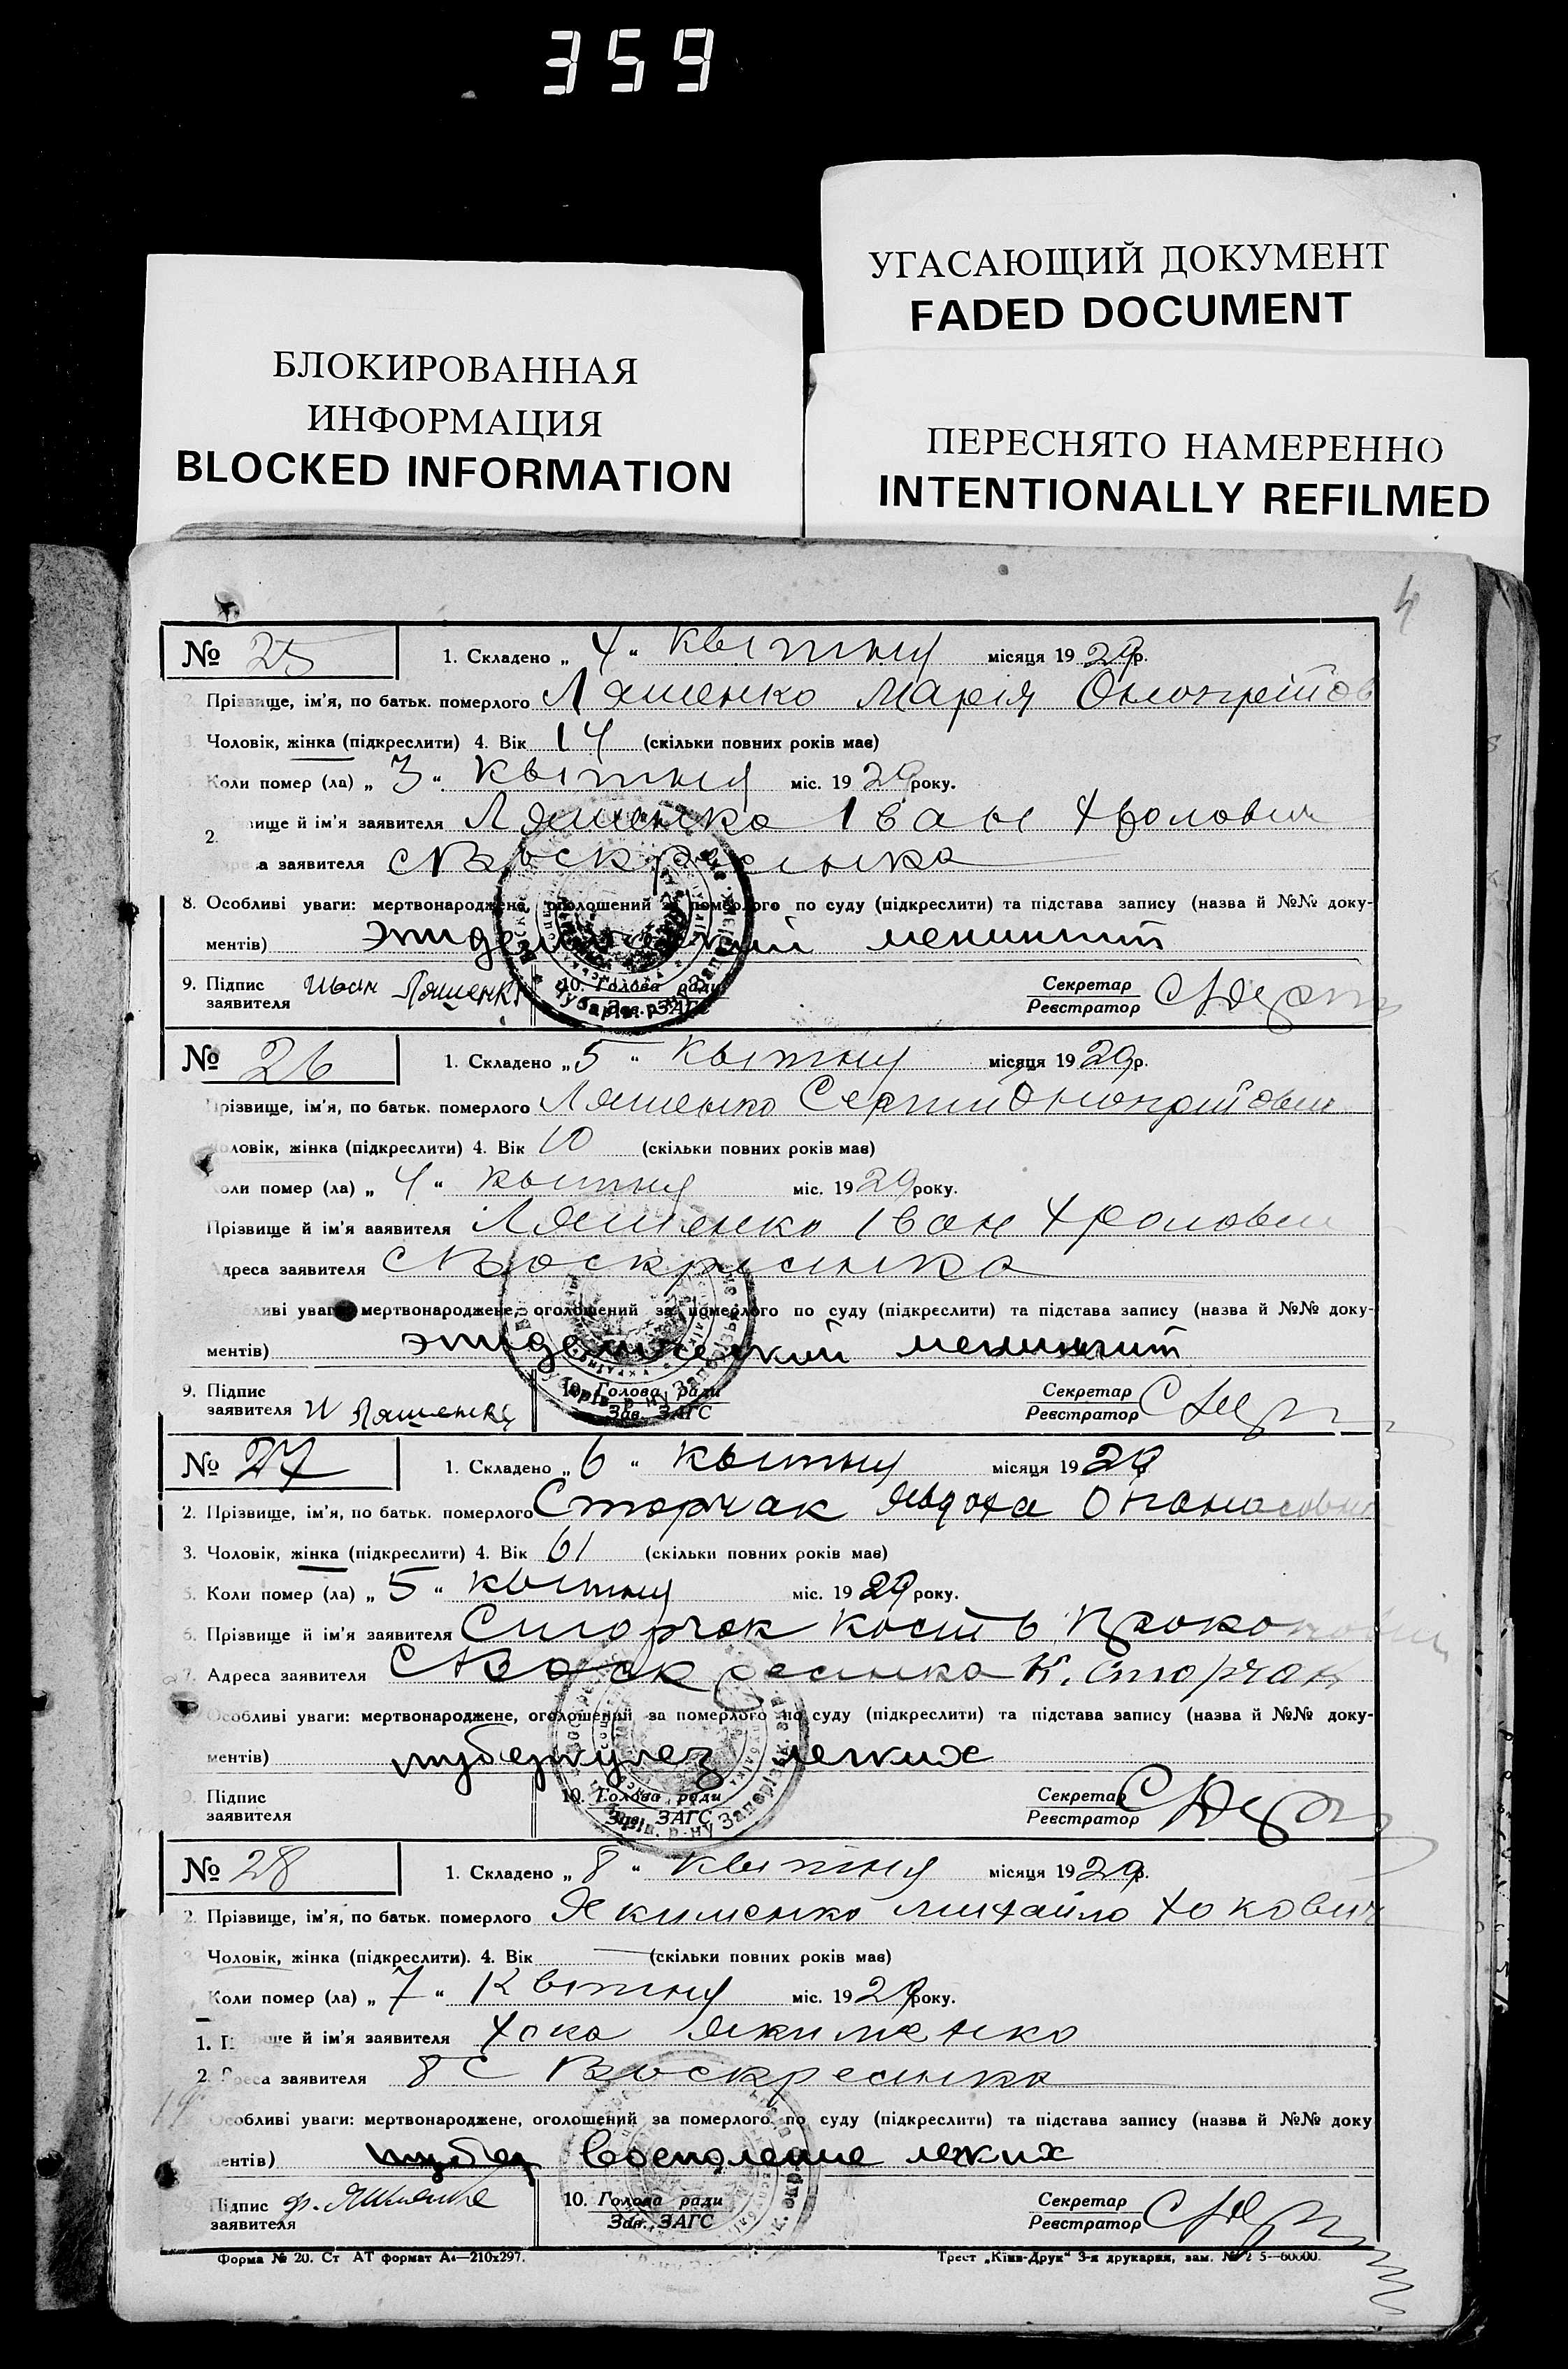 359
УГАСАЮЩИЙ ДОКУМЕНТ
FADED DOCUMENT
БЛОКИРОВАННАЯ
ИНФОРМАЦИЯ
BLOCKED INFORMATION
ПЕРЕСНЯТО НАМЕРЕННО
INTENTIONALLY REFILMED
4
№ 25 1. Складено „ 4 “ квітня місяця 1929р.
2. Прізвище, ім'я, по батьк. померлого Ляшенко Марія
3. Чоловік, жінка (підкреслити) 4. Вік 14 (скільки повних років має)
Коли помер (ла) „ 3 “ квітня міс. 1929року.
2. вище й ім'я заявителя Ляшенко Іван
а заявителя с Воскресенка
8. Особливі уваги: мертвонароджене, оголошений за померлого по суду (підкреслити) та підстава запису (назва й №№ доку-
ментів) эпидемический менингит
9. Підпис заявителя Иван Ляшенко 10. Голова ради Зав. ЗАГС Секретар Реєстратор
№ 26 1. Складено „ 5 “ квітня місяця 1929р.
Прізвище, ім'я, по батьк. померлого Ляшенко Сергій
Чоловік, жінка (підкреслити) 4. Вік 10 (скільки повних років має)
Коли помер (ла) „ 4 “ квітня міс. 1929року.
Прізвище й ім'я заявителя Ляшенко Іван
Адреса заявителя с Воскресенка
ливі уваги мертвонароджене, оголошений за померлого по суду (підкреслити) та підстава запису (назва й №№ доку-
ментів) эпидемический менингит
9. Підпис заявителя И Ляшенко 10. Голова ради Зав. ЗАГС Секретар Реєстратор
№ 27 1. Складено „ 6 “ квітня місяця 1929
2. Прізвище, ім'я, по батьк. померлого Сторчак Явдоха Опанасовна
3. Чоловік, жінка (підкреслити) 4. Вік 61 (скільки повних років має)
5. Коли помер (ла) „ 5 “ квітня міс. 1929 року.
6. Прізвище й ім'я заявителя Сторчак Кость
7. Адреса заявителя с Воскресенка К. Сторчак
Особливі уваги: мертвонароджене, оголошений за померлого по суду (підкреслити) та підстава запису (назва й №№ доку-
ментів) туберкулез легких
9. Підпис заявителя 10. Голова ради Зав. ЗАГС Секретар Реєстратор
№ 28 1. Складено „ 8 “ квітня місяця 1929р.
2. Прізвище, ім'я, по батьк. померлого Якименко Михайло Хокович
3. Чоловік, жінка (підкреслити). 4. Вік — (скільки повних років має)
Коли помер (ла) „ 7 “ Квітня міс. 1929року.
1. П ще й ім'я заявителя Хока Якименко
2. реса заявителя 8 с Воскресенка
19 Особливі уваги: мертвонароджене, оголошений за померлого по суду (підкреслити) та підстава запису (назва й №№ доку
ментів) воспаление легких
9. Підпис заявителя 10. Голова ради Зав. ЗАГС Секретар Реєстратор
Форма № 20. Ст АТ формат А4—210х297. Трест „Київ-Друк“ 3-я друкарня, зам.